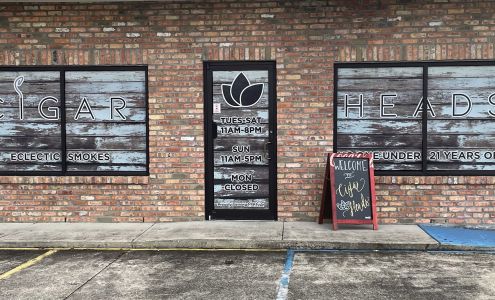 CIGAR
ECLECTIC SMOKES
TUES-SAT
11AM-8PM
SUN
11AM-5PM
MON
-CLOSED-
HEADS
UNDER 21 YEARS O
WELCOME
to
Cigar
Heads